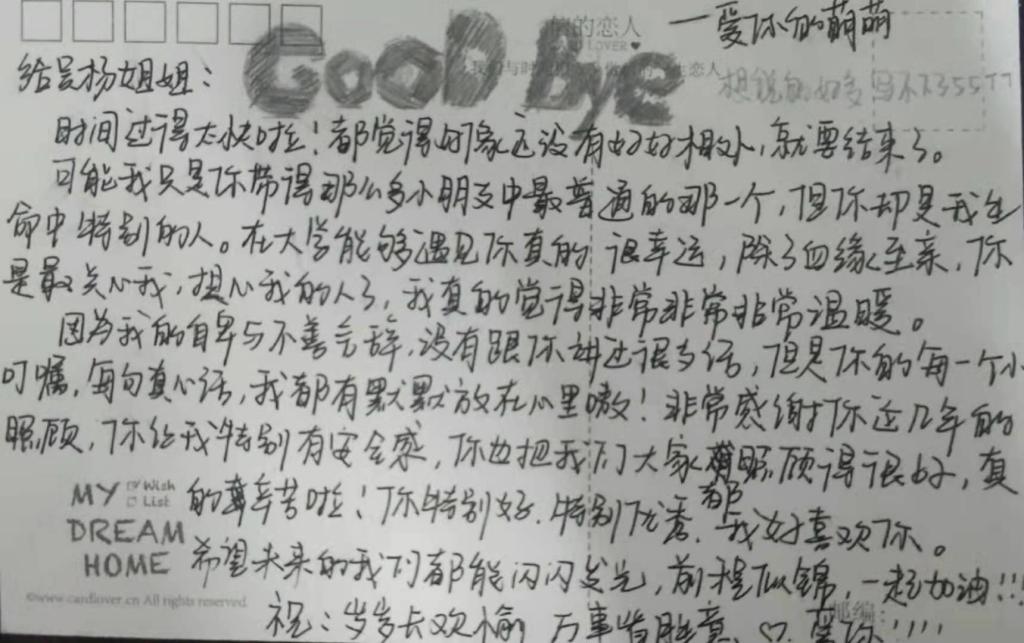 你的恋人
CARD LOVER
—爱你的萌萌
GooD bye
想说的好多 写不下555TT
给吴杨姐姐：
时间过得太快啦！都觉得好象还没有好好相处，就要结束了。
可能我只是你带得那么多小朋友中最普通的那一个，但你却是我生
命中特别的人。在大学能够遇见你真的 很幸运，除了血缘至亲，你
是最关心我，担心我的人了，我真的觉得非常非常非常温暖。
因为我的自卑与不善言辞，没有跟你讲过很多话，但是你的每一个小
叮嘱，每句真心话，我都有默默放在心里嗷！非常感谢你这几年的
照顾，你给我特别有安全感，你也把我们大家都照顾得很好，真
的辛苦啦！你特别好，特别优秀，我好喜欢你。
希望未来的我们都能闪闪发光，前程似锦，一起加油!!!
祝：岁岁长欢愉，万事皆胜意，♡ 爱你!!!!
MY Wish List
DREAM
HOME
©www.cardlover.cn All rights reserved.
邮编：